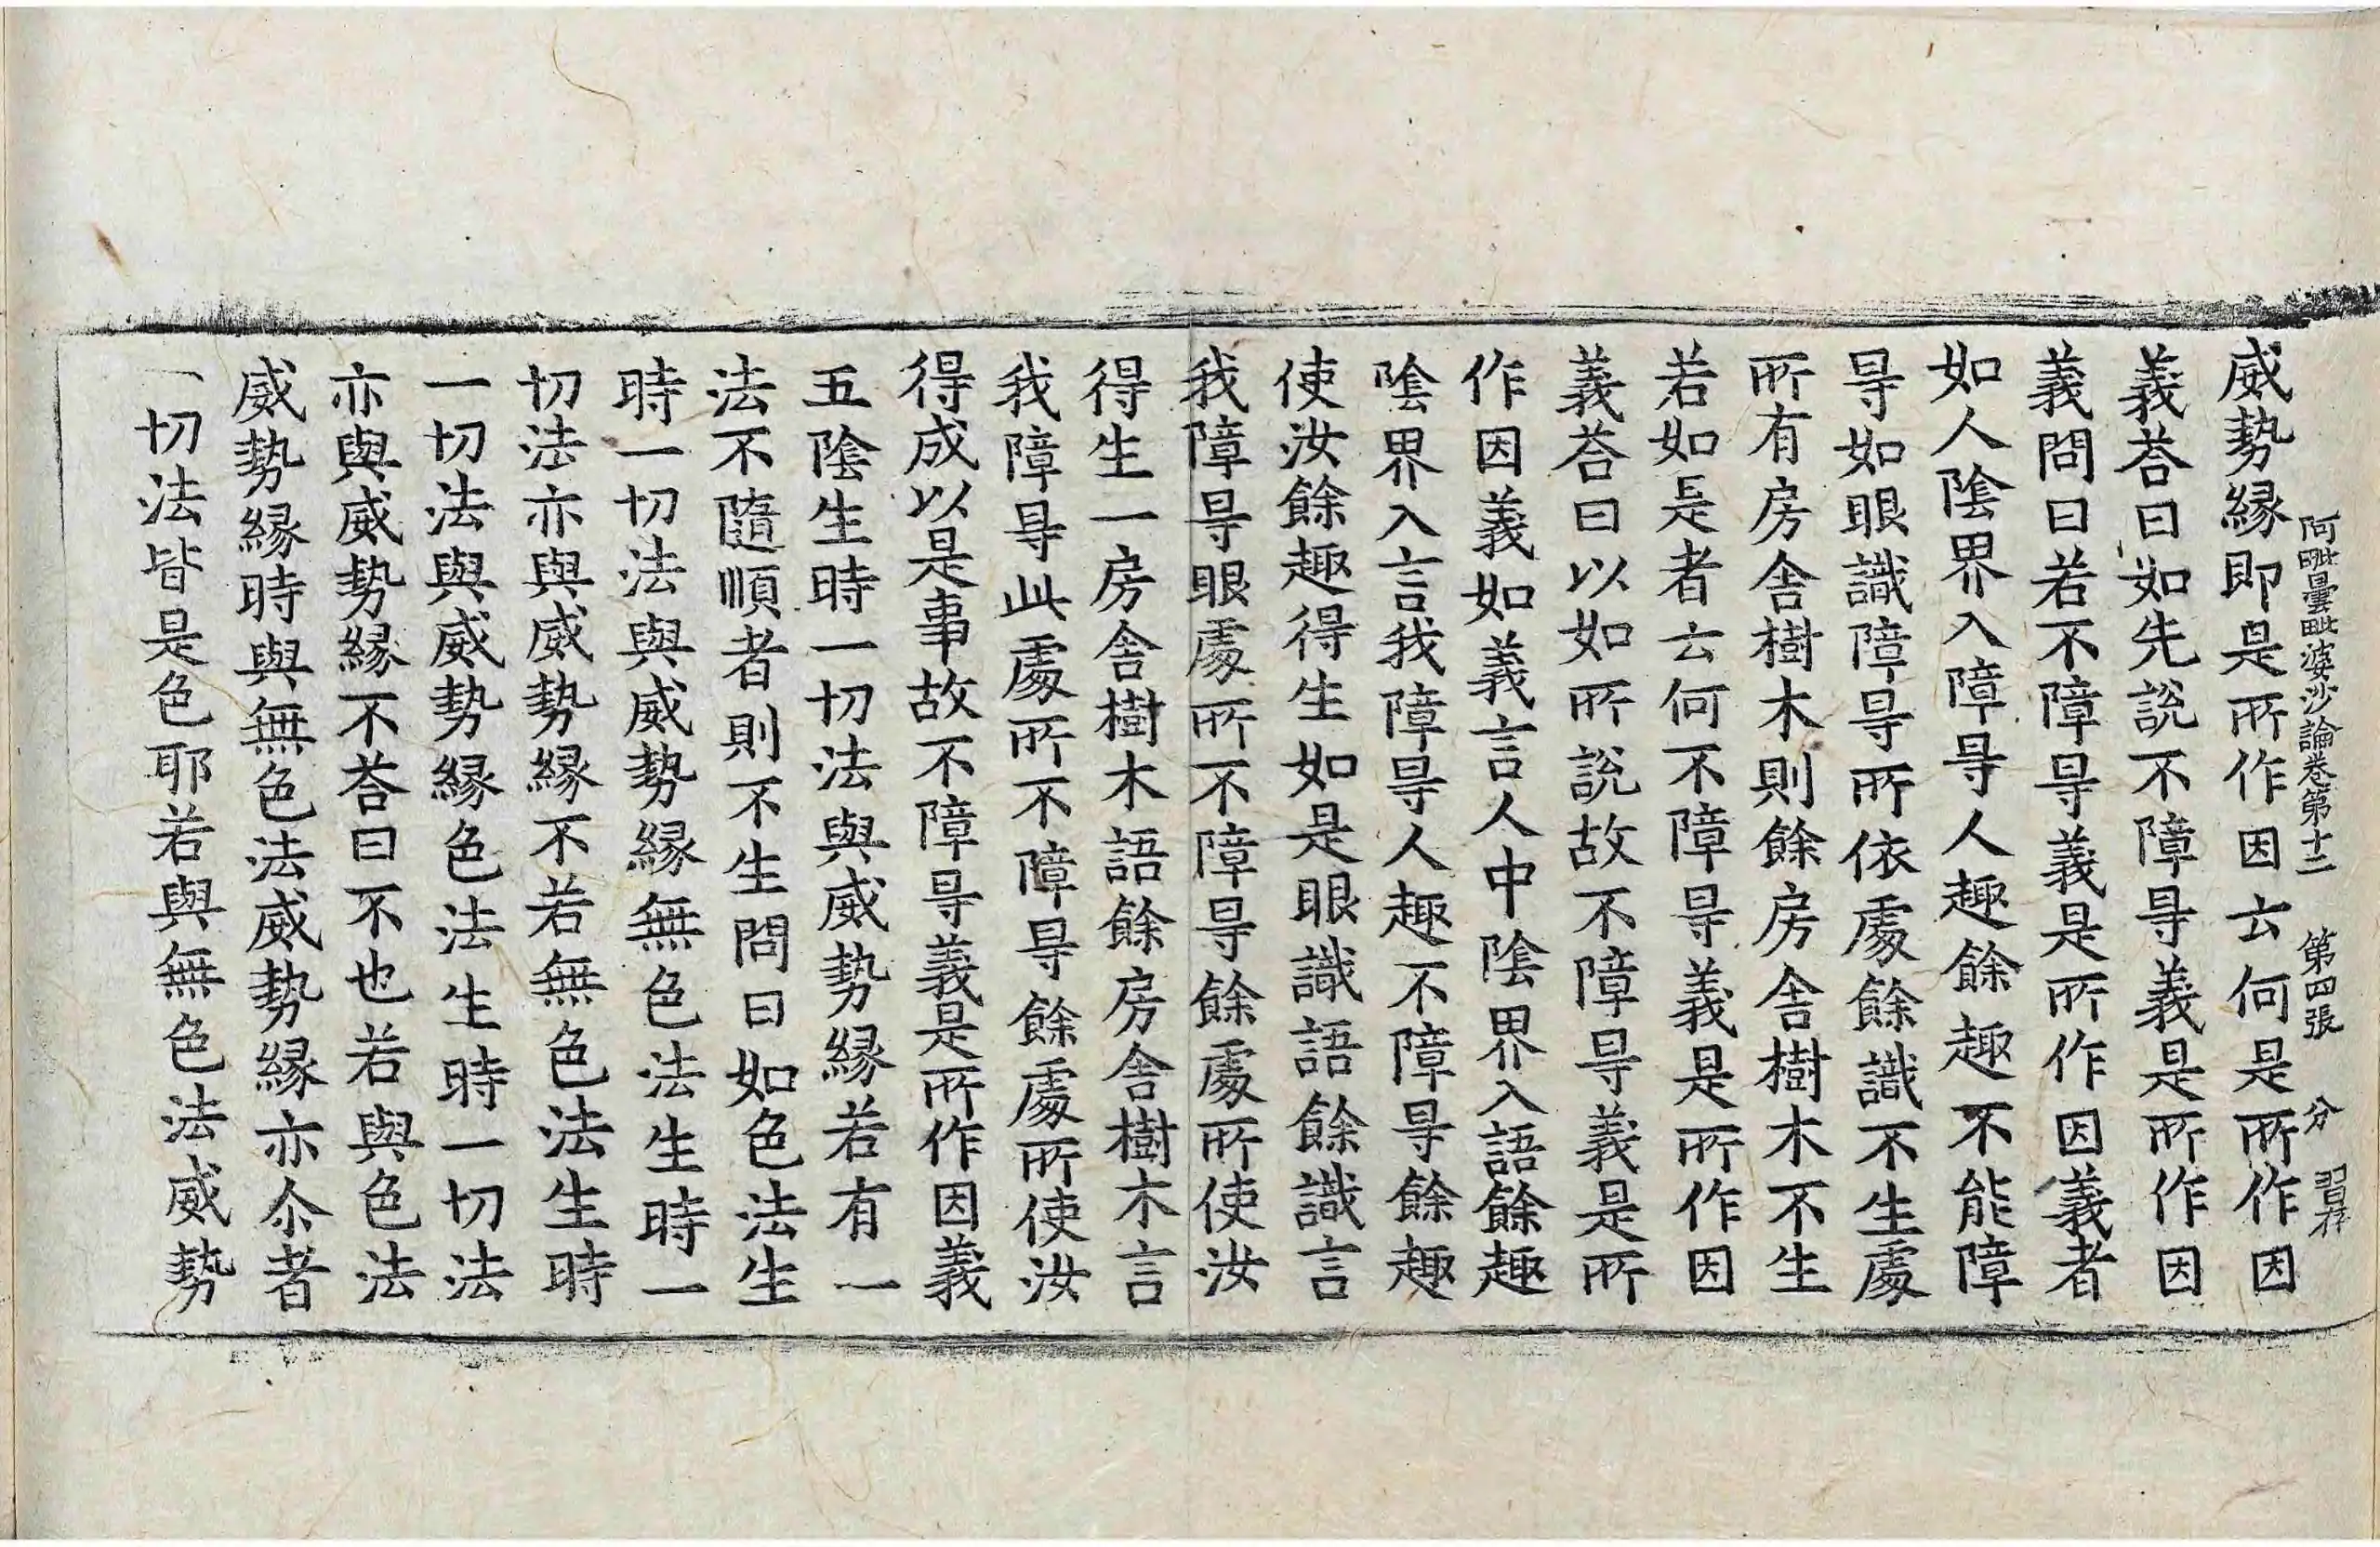 阿毗曇毗婆沙論卷第十二　第四張　分　習存
威勢緣即是所作因云何是所作因
義荅曰如先說不障㝵義是所作因
義問曰若不障㝵義是所作因義者
如人陰界入障㝵人趣餘趣不能障
㝵如眼識障㝵所依處餘識不生處
所有房舍樹木則餘房舍樹木不生
若如是者云何不障㝵義是所作因
義荅曰以如所說故不障㝵義是所
作因義如義言人中陰界入語餘趣
陰界入言我障㝵人趣不障㝵餘趣
使汝餘趣得生如是眼識語餘識言
我障㝵眼處所不障㝵餘處所使汝
得生一房舍樹木語餘房舍樹木言
我障㝵此處所不障㝵餘處所使汝
得成以是事故不障㝵義是所作因義
五陰生時一切法與威勢緣若有一
法不隨順者則不生問曰如色法生
時一切法與威勢緣無色法生時一
切法亦與威勢緣不若無色法生時
一切法與威勢緣色法生時一切法
亦與威勢緣不荅曰不也若與色法
威勢緣時與無色法威勢緣亦尒者
一切法皆是色耶若與無色法威勢